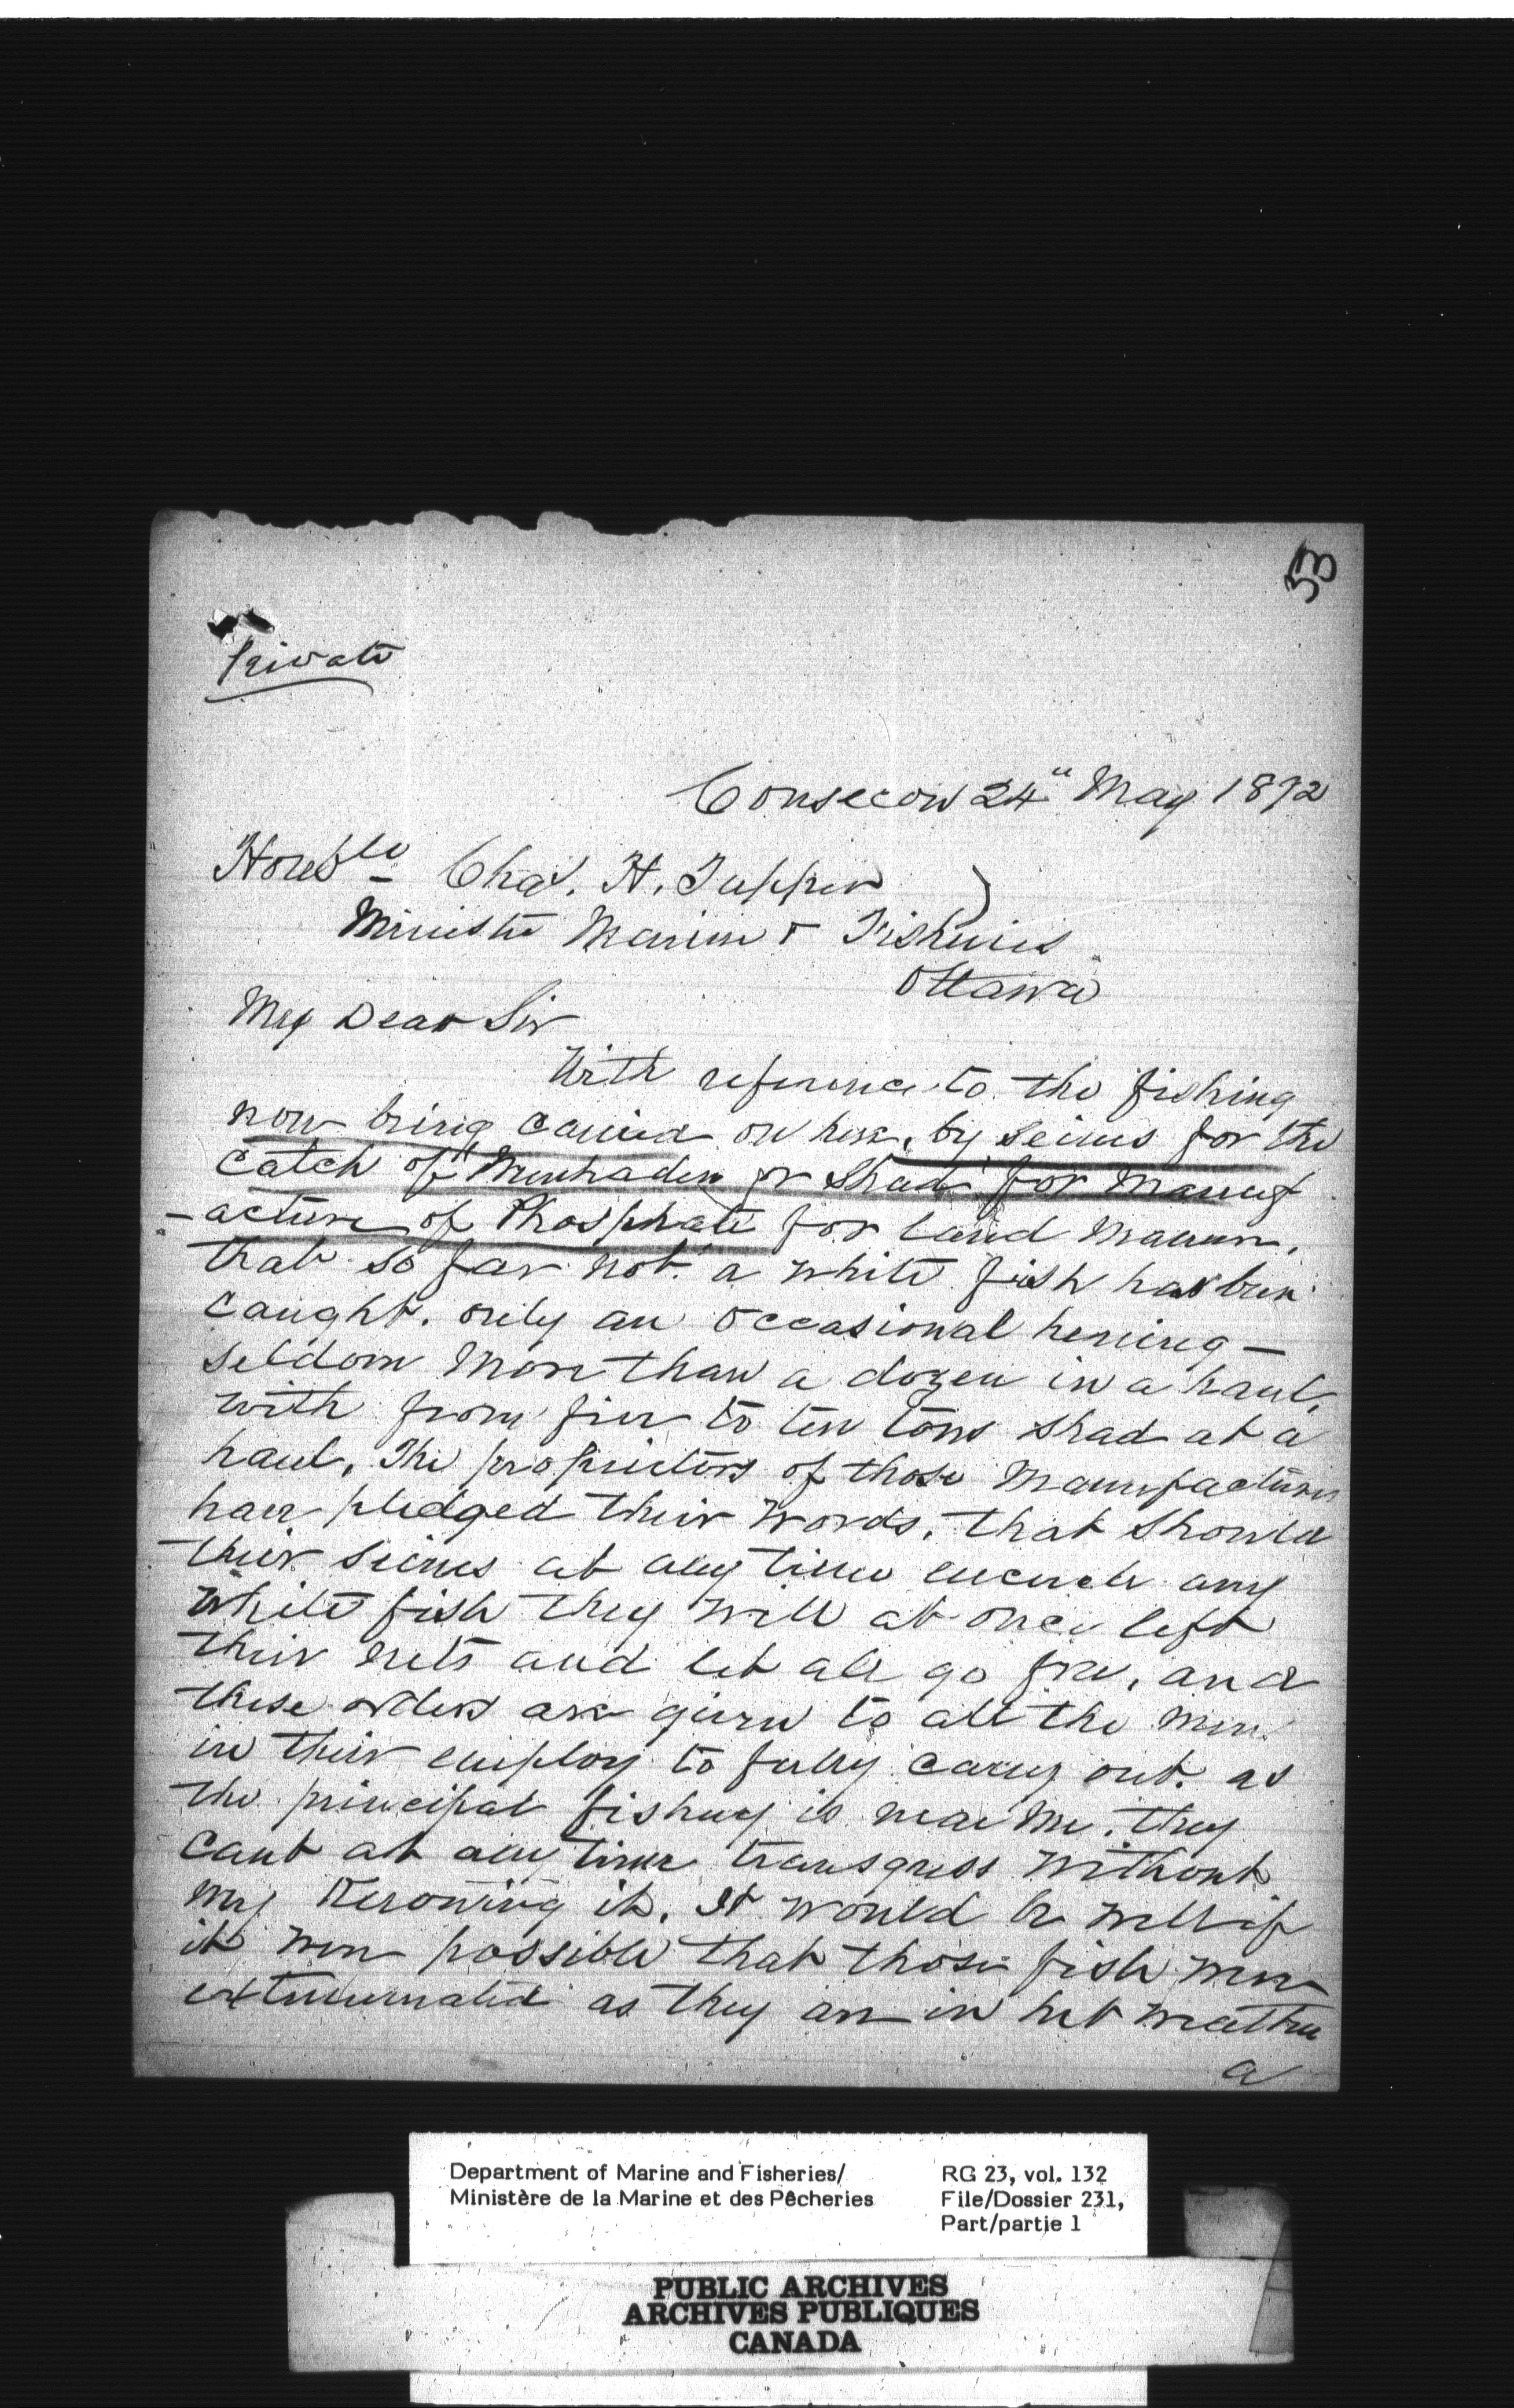 53
Private
Consecon 24" May 1892
Honble Chas. H. Tupper
Minister Marine & Fisheries
Ottawa
My Dear Sir
With reference to the fishing
now being carried on here, by seines for the
catch of "Menhaden or Shad" for manuf
-acture of Phosphate for land manure,
that so far not a white fish has been
caught. only an occasional herring —
seldom more than a dozen in a haul,
with from five to ten tons shad at a
haul. The proprietors of those manufactures
have pledged their words, that should
their seines at any time encircle any
white fish they will at once left
their nets and let all go free, and
these orders are given to all the men
in their employ to fully carry out. as
the principal fishing is near me, they
cant at any time transgress without
my knowing it. It would be well if
it were possible that those fish were
exterminated as they are in hot weather
a
Department of Marine and Fisheries/
Ministère de la Marine et des Pêcheries
RG 23, vol. 132
File/Dossier 231,
Part/partie 1
PUBLIC ARCHIVES
ARCHIVES PUBLIQUES
CANADA